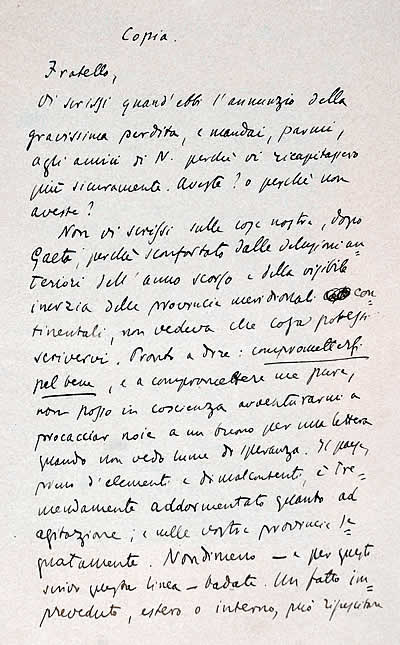 Copia.
Fratello,
Vi scrissi quand'ebbi l'annunzio della
gravissima perdita, e mandai, parmi,
agli amici di N. perchè vi ricapitassero
più sicuramente. Aveste? o perchè non
aveste?
Non vi scrissi sulle cose nostre, dopo
Gaeta, perchè sconfortato dalle delusioni an-
teriori dell'anno scorso e della visibile
inerzia delle provincie meridionali con-
tinentali, non vedeva che cosa potessi
scrivervi. Pronto a dire: comprometterſi
pel bene, e a compromettere me pure,
non posso in coscienza avventurarmi a
procacciar noie a un buono per una lettera
quando non vedo lume di speranza. Il paese,
pieno d'elementi e di malcontenti, è tre-
mendamente addormentato quanto ad
agitazione; e nelle vostre provincie se-
gnatamente. Nondimeno — e per questo
scrivo questa linea — badate. Un fatto im-
preveduto, estero o interno, può risuscitare